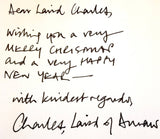 Dear Laird Charles,
Wishing you a very
MERRY CHRISTMAS
and a very HAPPY
NEW YEAR —
with kindest regards,
Charles, Laird of